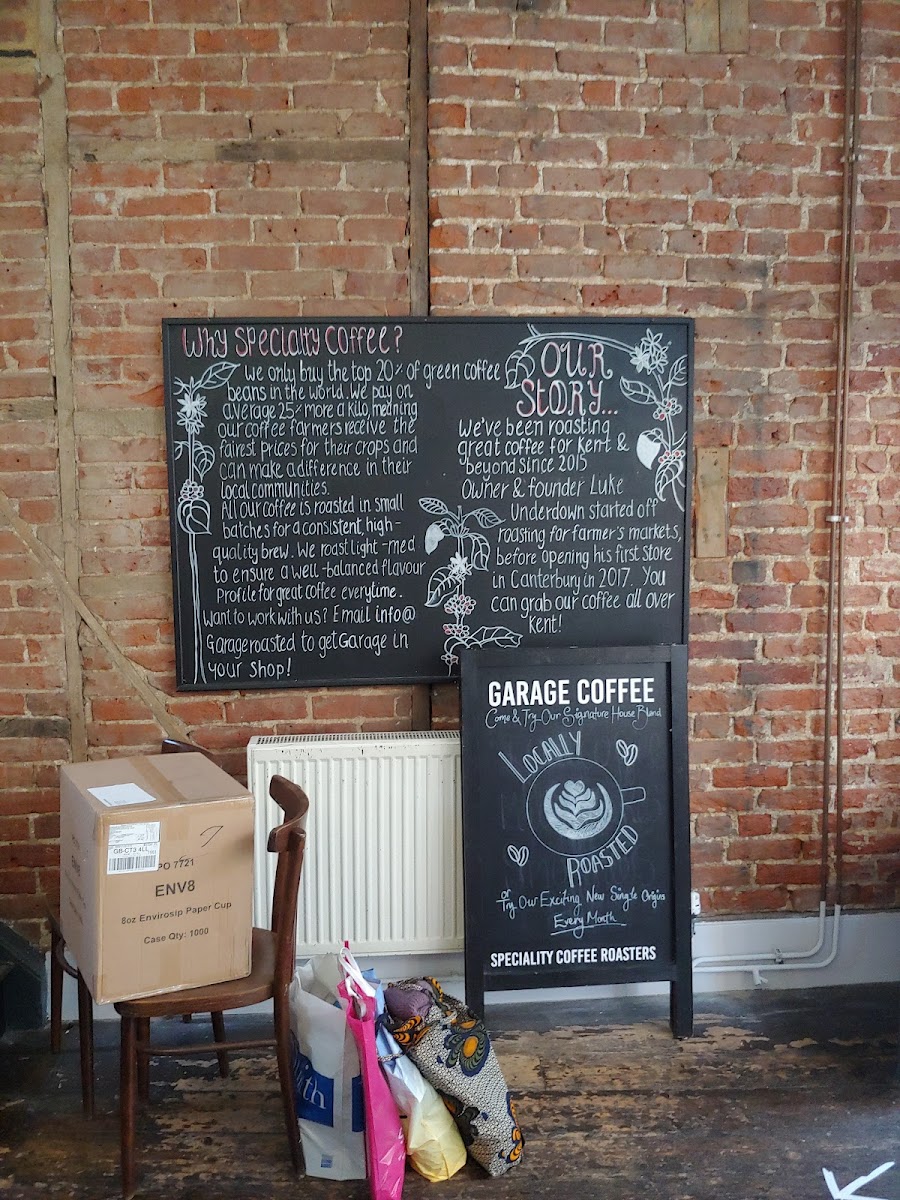 Why Specialty Coffee?
We only buy the top 20% of green coffee
beans in the world. We pay on
average 25% more a kilo, meaning
our coffee farmers receive the
fairest prices for their crops and
can make a difference in their
local communities.
All our coffee is roasted in small
batches for a consistent, high-
quality brew. We roast light-med
to ensure a well-balanced flavour
profile for great coffee everytime.
Want to work with us? Email info@
Garageroasted to get Garage in
your Shop!
OUR
STORY...
We've been roasting
great coffee for Kent &
beyond since 2015
Owner & founder Luke
Underdown started off
roasting for farmer's markets,
before opening his first store
in Canterbury in 2017. You
can grab our coffee all over
Kent!
GARAGE COFFEE
Come & Try Our Signature House Blend
LOCALLY
ROASTED
or
Try Our Exciting New Single Origins
Every Month
SPECIALITY COFFEE ROASTERS
GB-CT3 4LL
7
PO 7721
ENV8
8oz Envirosip Paper Cup
Case Qty: 1000